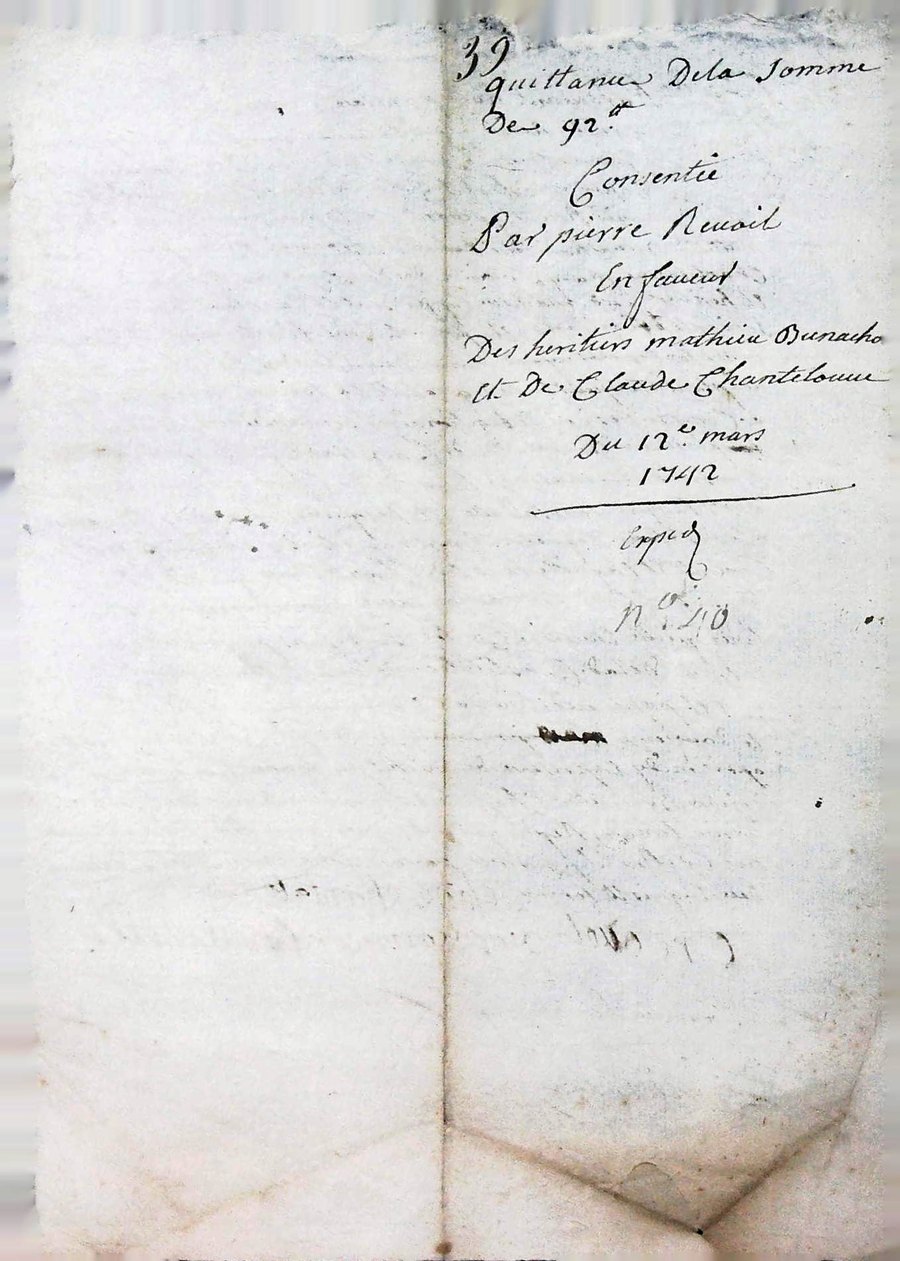 39
quittance Dela somme
De 92.tt
Consentie
Par pierre Revoil
En faueur
Des heritiers mathieu Bunacho
Et De Claude Chantelouue
Du 12e mars
1742
Exped
n.o 40